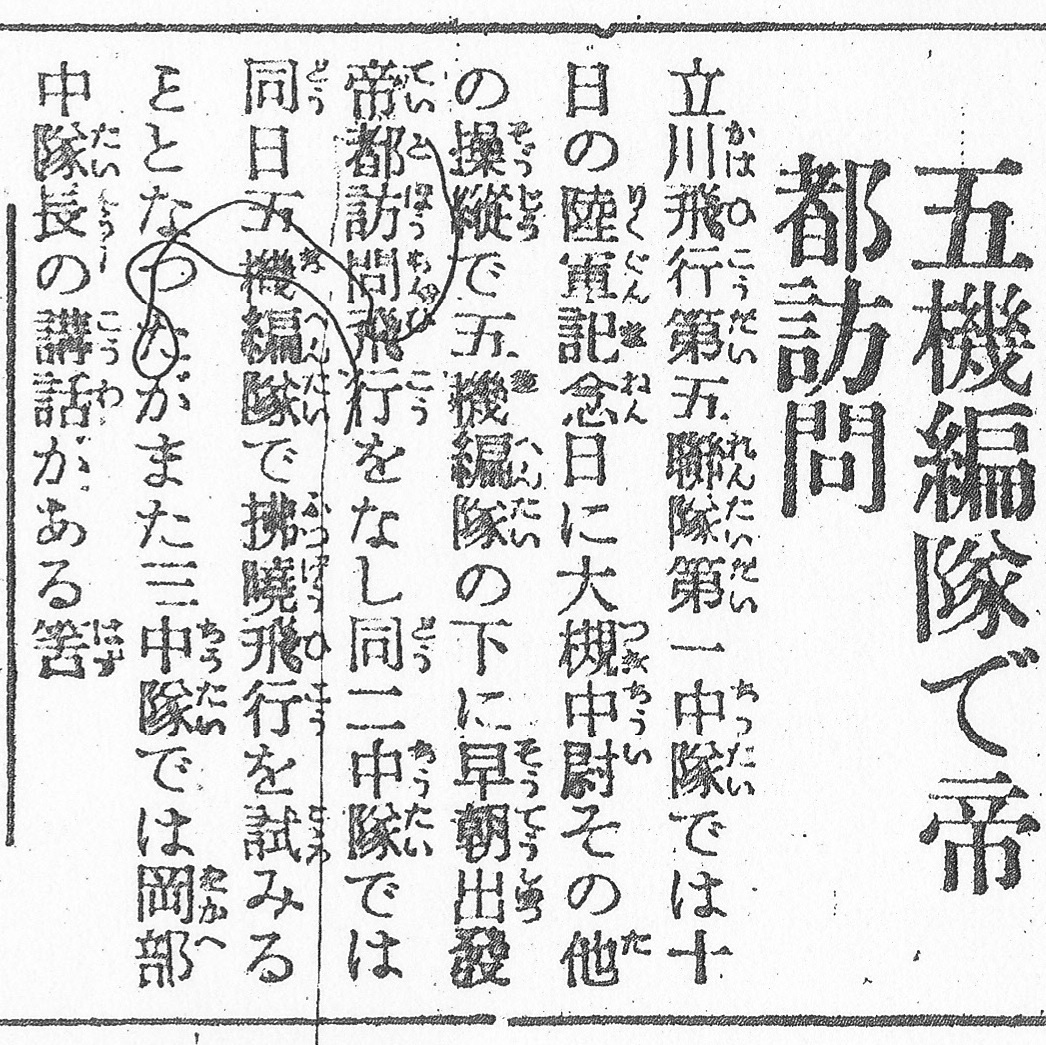 五機編隊で帝
都訪問
立川飛行第五聯隊第一中隊では十
日の陸軍記念日に大槻中尉その他
の操縱で五機編隊の下に早朝出發
帝都訪問飛行をなし同二中隊では
同日五機編隊で拂曉飛行を試みる
ことなつたがまた三中隊では岡部
中隊長の講話がある筈